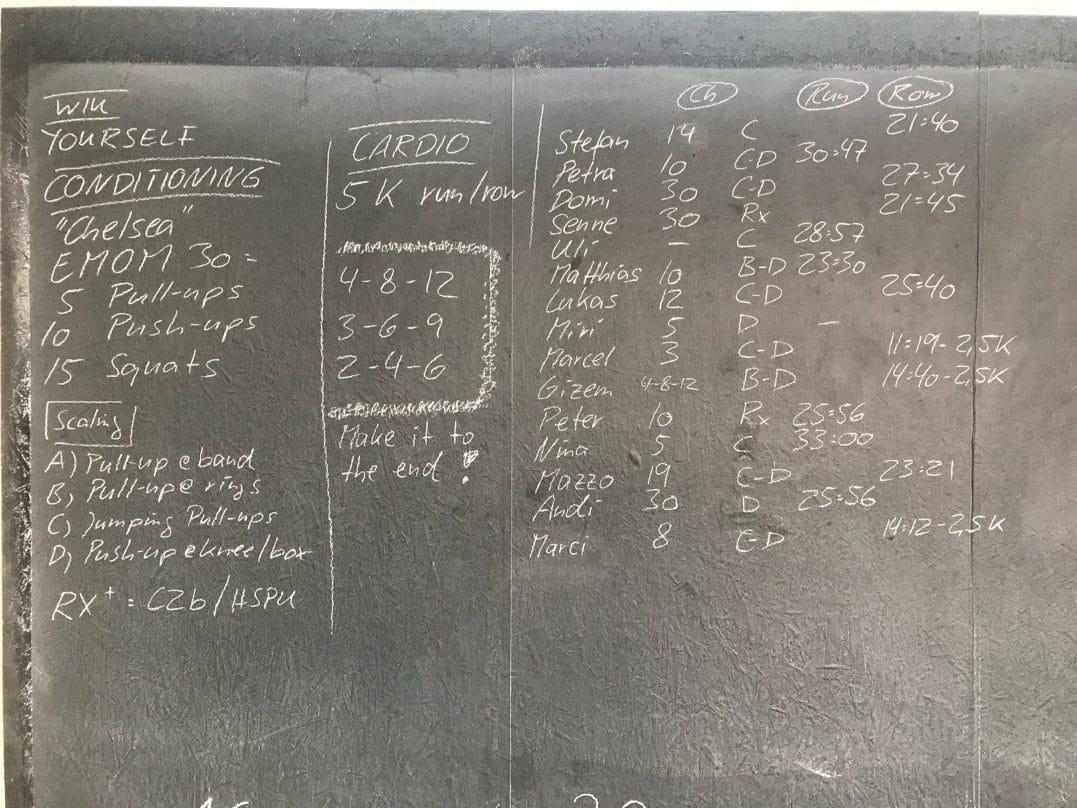 WIN
YOURSELF
CONDITIONING
"Chelsea"
EMOM 30 =
5 Pull-ups
10 Push-ups
15 Squats
Scaling
A) Pull-up @ band
B) Pull-up @ rings
C) Jumping Pull-ups
D) Push-up @ knee/box
RX+ = C2b/HSPU
CARDIO
5K run/row
4-8-12
3-6-9
2-4-6
Make it to
the end!
Ch Run Row
Stefan 14 C 21:40
Petra 10 C-D 30:47
Domi 30 C-D 27:34
Senne 30 Rx 21:45
Uli - C 28:57
Matthias 10 B-D 23:30
Lukas 12 C-D 25:40
Miri 5 D -
Marcel 3 C-D 11:19-2,5K
Gizem 4-8-12 B-D 14:40-2,5K
Peter 10 Rx 25:56
Nina 5 C 33:00
Mazzo 19 C-D 23:21
Andi 30 D 25:56
Marci 8 C-D 14:12-2,5K